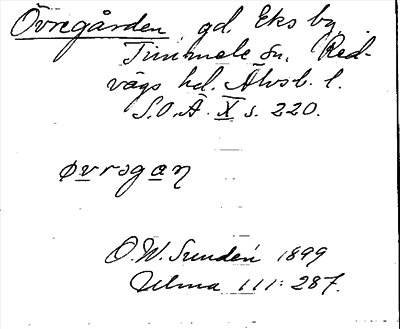 Övregården, gd. Eks by
Timmele sn. Red-
vägs hd. Älvsb. l.
S.O.Ä. X s. 220.
øvrogan
O.W. Sundén 1899
Ulma 111: 287.